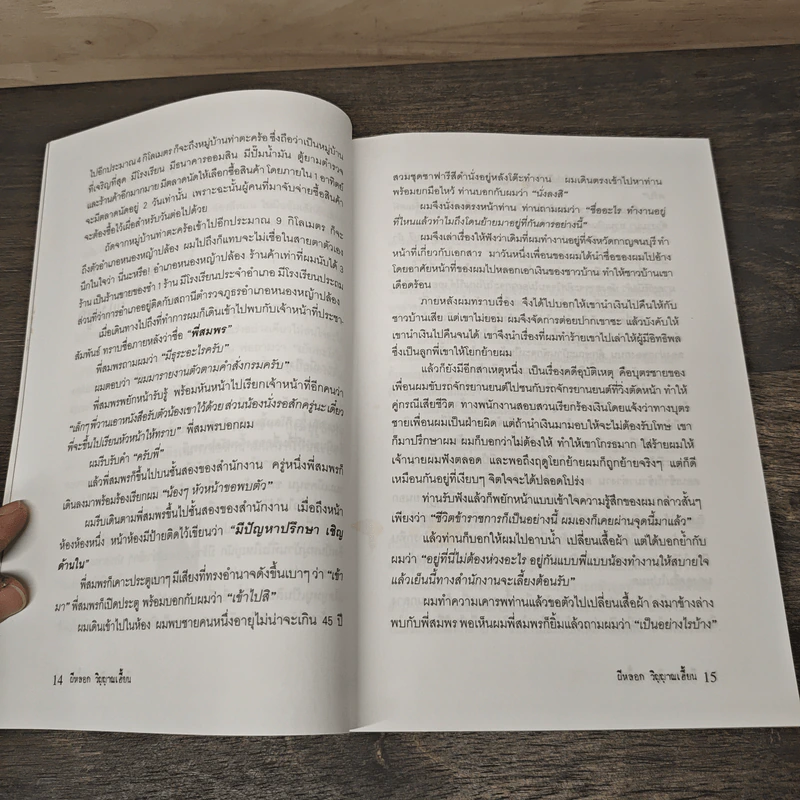 ไปอีกประมาณ 4 กิโลเมตร ก็จะถึงหมู่บ้านท่าตะคร้อ ซึ่งถือว่าเป็นหมู่บ้าน
ที่เจริญที่สุด มีโรงเรียน มีธนาคารออมสิน มีปั๊มน้ำมัน ตู้ยามตำรวจ
และร้านค้าอีกมากมาย มีตลาดนัดให้เลือกซื้อสินค้า โดยภายใน 1 อาทิตย์
จะมีตลาดนัดอยู่ 2 วันเท่านั้น เพราะฉะนั้นผู้คนที่มาจับจ่ายซื้อสินค้า
จะต้องซื้อไว้เผื่อสำหรับวันต่อไปด้วย
ถัดจากหมู่บ้านท่าตะคร้อเข้าไปอีกประมาณ 9 กิโลเมตร ก็จะ
ถึงตัวอำเภอหนองหญ้าปล้อง ผมไปถึงก็แทบจะไม่เชื่อในสายตาตัวเอง
นึกในใจว่า นี่นะหรือ! อำเภอหนองหญ้าปล้อง ร้านค้าเท่าที่ผมนับได้ 3
ร้าน เป็นร้านขายของชำ 1 ร้าน มีโรงเรียนประจำอำเภอ มีโรงเรียนประถม
ส่วนที่ว่าการอำเภออยู่ติดกับสถานีตำรวจภูธรอำเภอหนองหญ้าปล้อง
เมื่อเดินทางไปถึงที่ทำการผมก็เดินเข้าไปพบกับเจ้าหน้าที่ประชา-
สัมพันธ์ ทราบชื่อภายหลังว่าชื่อ "พี่สมพร"
พี่สมพรถามผมว่า "มีธุระอะไรครับ"
ผมตอบว่า "ผมมารายงานตัวตามคำสั่งกรมครับ"
พี่สมพรพยักหน้ารับรู้ พร้อมหันหน้าไปเรียกเจ้าหน้าที่อีกคนว่า
"เล็กๆ พี่วานเอาหนังสือรับตัวน้องเขาไว้ด้วย ส่วนน้องนั่งรอสักครู่นะเดี๋ยว
พี่จะขึ้นไปเรียนหัวหน้าให้ทราบ" พี่สมพรบอกผม
ผมรีบรับคำ "ครับพี่"
แล้วพี่สมพรก็ขึ้นไปบนชั้นสองของสำนักงาน ครู่หนึ่งพี่สมพรก็
เดินลงมาพร้อมร้องเรียกผม "น้องๆ หัวหน้าขอพบตัว"
ผมรีบเดินตามพี่สมพรขึ้นไปชั้นสองของสำนักงาน เมื่อถึงหน้า
ห้องห้องหนึ่ง หน้าห้องมีป้ายติดไว้เขียนว่า "มีปัญหาปรึกษา เชิญ
ด้านใน"
พี่สมพรก็เคาะประตูเบาๆ มีเสียงที่ทรงอำนาจดังขึ้นเบาๆ ว่า "เข้า
มา" พี่สมพรก็เปิดประตู พร้อมบอกกับผมว่า "เข้าไปสิ"
ผมเดินเข้าไปในห้อง ผมพบชายคนหนึ่งอายุไม่น่าจะเกิน 45 ปี
14 ผีหลอก วิญญาณเฮี้ยน
สวมชุดซาฟารีสีดำนั่งอยู่หลังโต๊ะทำงาน ผมเดินตรงเข้าไปหาท่าน
พร้อมยกมือไหว้ ท่านบอกกับผมว่า "นั่งลงสิ"
ผมจึงนั่งลงตรงหน้าท่าน ท่านถามผมว่า "ชื่ออะไร ทำงานอยู่
ที่ไหนแล้วทำไมถึงโดนย้ายมาอยู่ที่กันดารอย่างนี้"
ผมจึงเล่าเรื่องให้ฟังว่าเดิมทีผมทำงานอยู่ที่จังหวัดกาญจนบุรี ทำ
หน้าที่เกี่ยวกับเอกสาร มาวันหนึ่งเพื่อนของผมได้นำชื่อของผมไปอ้าง
โดยอาศัยหน้าที่ของผมไปหลอกเอาเงินของชาวบ้าน ทำให้ชาวบ้านเขา
เดือดร้อน
ภายหลังผมทราบเรื่อง จึงได้ไปบอกให้เขานำเงินไปคืนให้กับ
ชาวบ้านเสีย แต่เขาไม่ยอม ผมจึงจัดการต่อยปากเขาซะ แล้วบังคับให้
เขานำเงินไปคืนจนได้ เขาจึงนำเรื่องที่ผมทำร้ายเขาไปเล่าให้ผู้มีอิทธิพล
ซึ่งเป็นลูกพี่เขาให้โยกย้ายผม
แล้วก็ยังมีอีกสาเหตุหนึ่ง เป็นเรื่องคดีอุบัติเหตุ คือบุตรชายของ
เพื่อนผมขับรถจักรยานยนต์ไปชนกับรถจักรยานยนต์ที่วิ่งตัดหน้า ทำให้
คู่กรณีเสียชีวิต ทางพนักงานสอบสวนเรียกร้องเงินโดยแจ้งว่าทางบุตร
ชายเพื่อนผมเป็นฝ่ายผิด แต่ถ้านำเงินมามอบให้จะไม่ต้องรับโทษ เขา
ก็มาปรึกษาผม ผมก็บอกว่าไม่ต้องให้ ทำให้เขาโกรธมาก ใส่ร้ายผมให้
เจ้านายผมฟังตลอด และพอถึงฤดูโยกย้ายผมก็ถูกย้ายจริงๆ แต่ก็ดี
เหมือนกันอยู่ที่เงียบๆ จิตใจจะได้ปลอดโปร่ง
ท่านรับฟังแล้วก็พยักหน้าแบบเข้าใจความรู้สึกของผม กล่าวสั้นๆ
เพียงว่า "ชีวิตข้าราชการก็เป็นอย่างนี้ ผมเองก็เคยผ่านจุดนี้มาแล้ว"
แล้วท่านก็บอกให้ผมไปอาบน้ำ เปลี่ยนเสื้อผ้า แต่ได้บอกย้ำกับ
ผมว่า "อยู่ที่นี่ไม่ต้องห่วงอะไร อยู่กันแบบพี่แบบน้องทำงานให้สบายใจ
แล้วเย็นนี้ทางสำนักงานจะเลี้ยงต้อนรับ"
ผมทำความเคารพท่านแล้วขอตัวไปเปลี่ยนเสื้อผ้า ลงมาข้างล่าง
พบกับพี่สมพร พอเห็นผมพี่สมพรก็ยิ้มแล้วถามผมว่า "เป็นอย่างไรบ้าง"
ผีหลอก วิญญาณเฮี้ยน 15